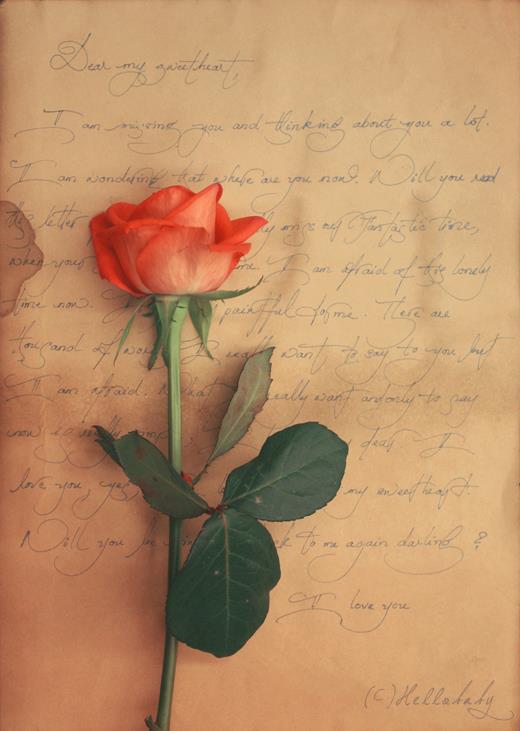 Dear my sweetheart,
I am missing you and thinking about you a lot.
I am wondering that where are you now. Will you read
this letter my fantastic time,
when your me. I am afraid of the lonely
time now. painful for me. There are
thousand of really want to say to you but
I am afraid. What really want and only to say
now is really dear I
love you, yes, my sweetheart.
Will you be to me again darling ?
I love you
(C)Hellobaby